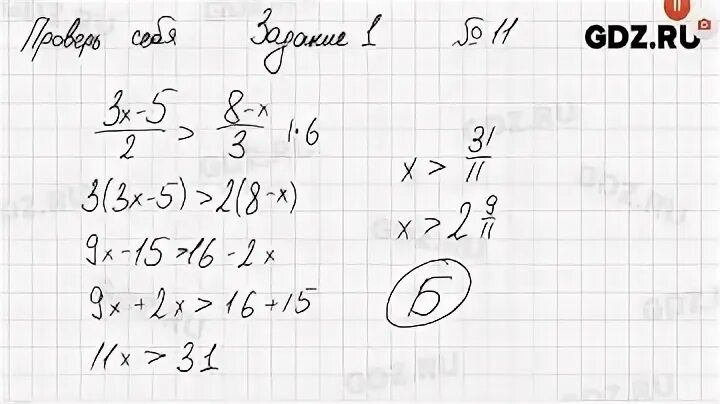 Проверь себя Задание 1 № 11
GDZ.RU
(3x-5)/2 > (8-x)/3 |·6
3(3x-5)>2(8-x)
9x-15>16-2x
9x+2x>16+15
11x>31
x > 31/11
x > 2 9/11
Б